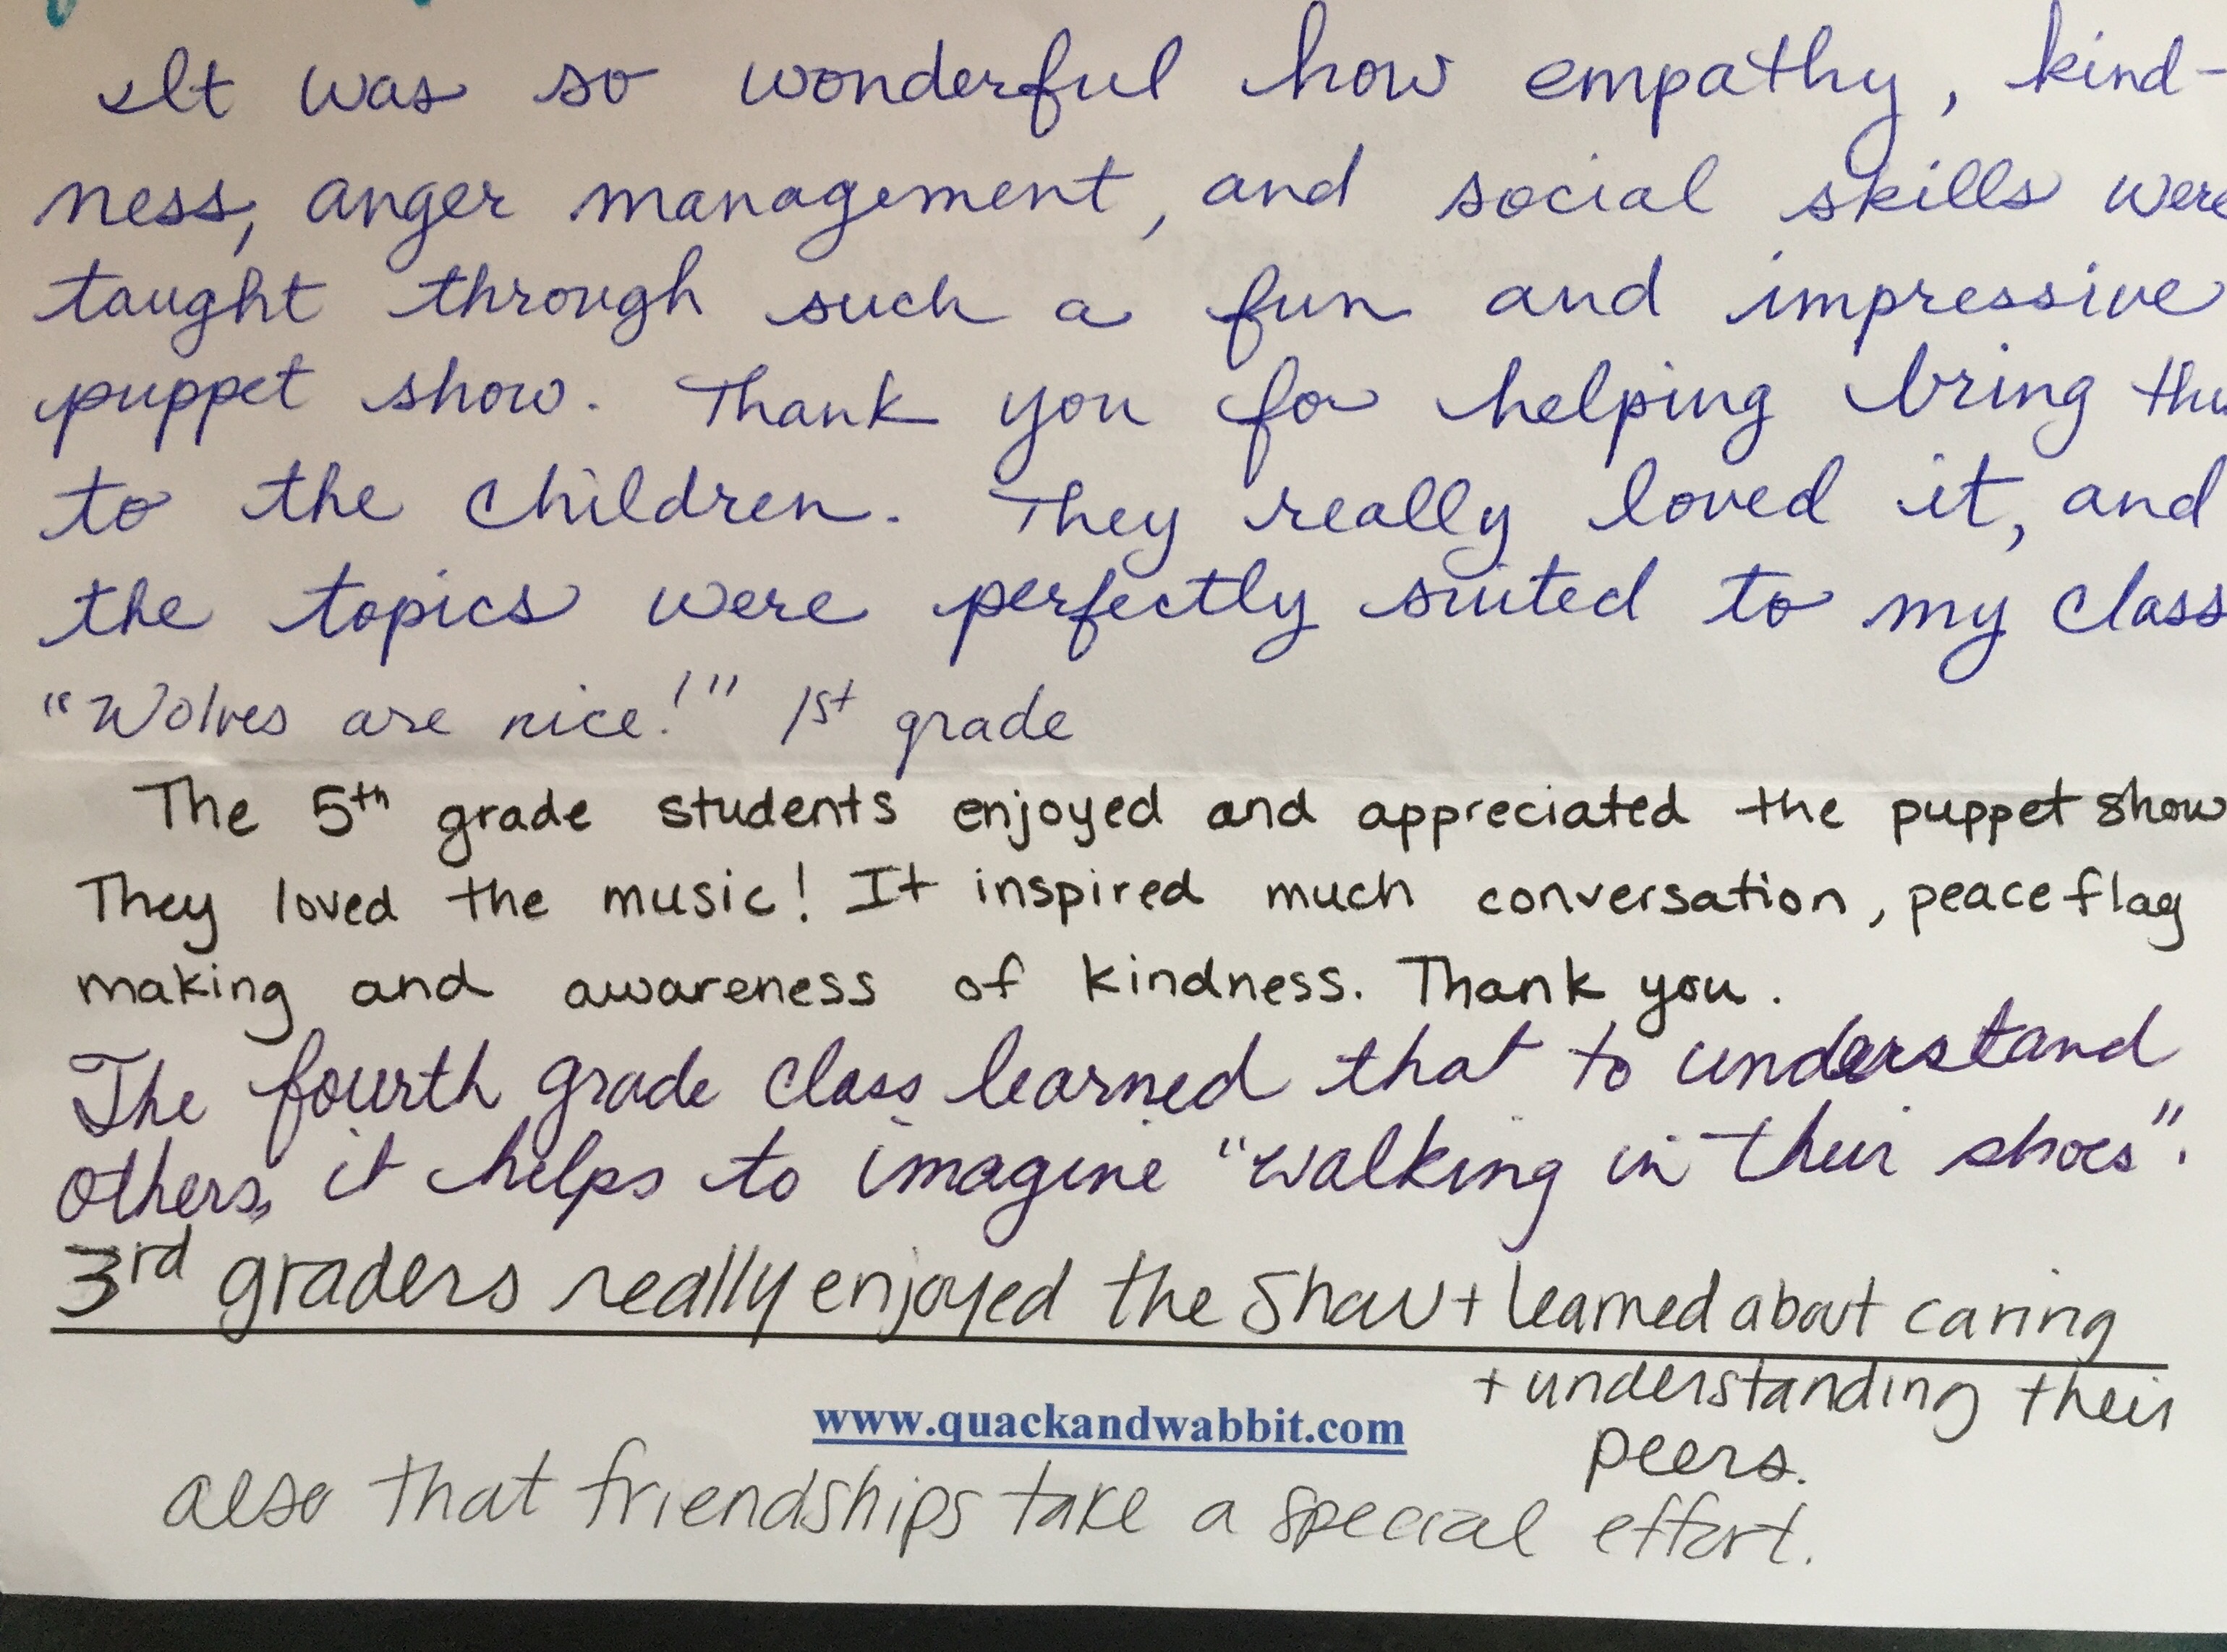 It was so wonderful how empathy, kind-
ness, anger management, and social skills were
taught through such a fun and impressive
puppet show. Thank you for helping bring
to the children. They really loved it, and
the topics were perfectly suited to my class
"Wolves are nice!" 1st grade
The 5th grade students enjoyed and appreciated the puppet show
They loved the music! It inspired much conversation, peace flag
making and awareness of kindness. Thank you.
The fourth grade class learned that to understand
others, it helps to imagine "walking in their shoes".
3rd graders really enjoyed the show + learned about caring
+ understanding their
peers.
www.quackandwabbit.com
also that friendships take a special effort.